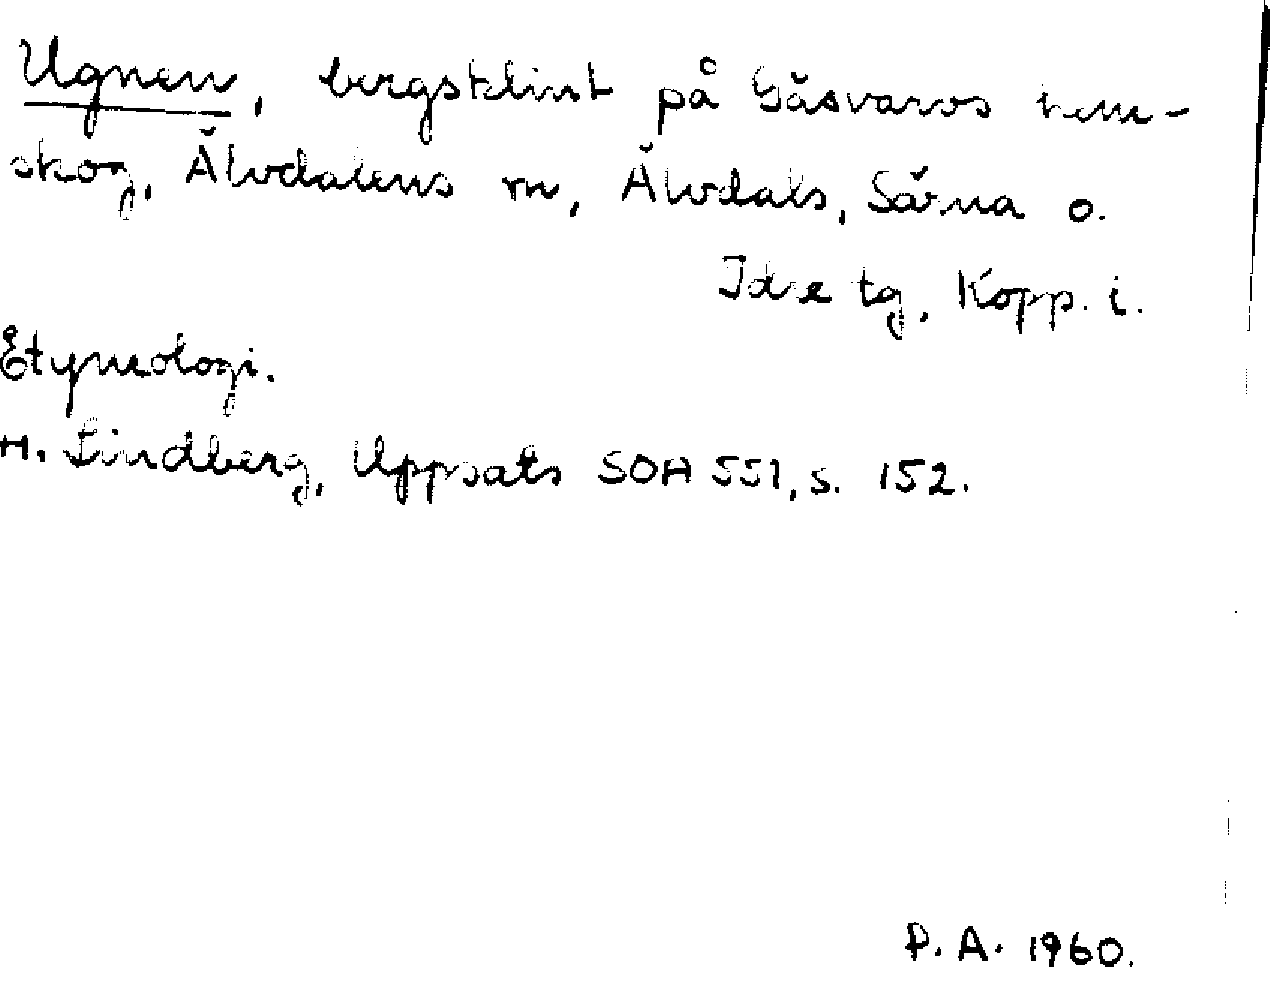 Ugnen, bergsklint på Gåsvaros hem-
skog, Älvdalens sn, Älvdals, Särna o.
Idre tg, Kopp. l.
Etymologi.
H. Lindberg, Uppsats SOA 551, s. 152.
P.A. 1960.